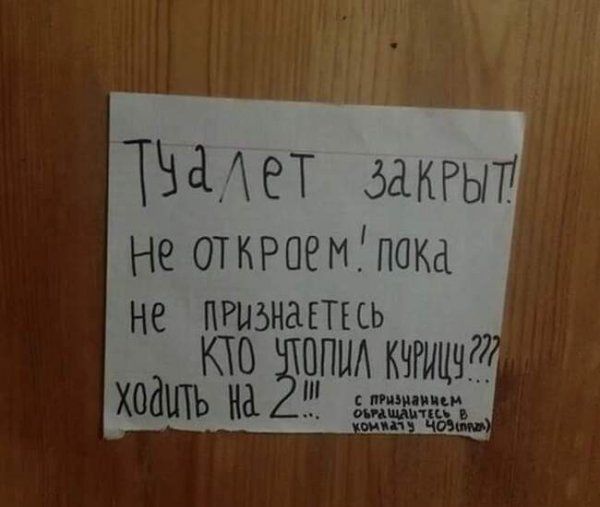 Туалет закрыт!
не откроем! пока
не признаетесь
кто утопил курицу???
ходить на 2!!!
с признанием
обращайтесь в
комнату 409